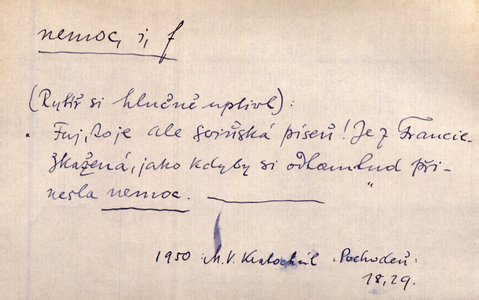 nemoc, i, f
(Rytíř si hlučně uplivl):
Fuj, to je ale sviňská píseň! Je z Francie.
Zkažená, jako kdyby si odtamtud při-
nesla nemoc.
1950 M. V. Kratochvíl Pochodeň
18, 29.